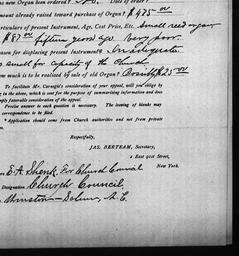 new Organ been ordered?
amount already raised toward purchase of Organ? $475.00
Particulars of present Instrument, Age, Cost Price, Etc. Small reed organ
$87.00 fifteen years ago. Very poor.
reason for displacing present Instrument? Inadequate
too small for capacity of the Church
much is to be realized by sale of old Organ? Possibly $25.00
To facilitate Mr. Carnegie's consideration of your appeal, will you
to the above, which is sent for the purpose of summarizing information and does
imply favorable consideration of the appeal.
Precise answer to each question is necessary. The leaving of blanks may
correspondence to be filed.
*Application should come from Church authorities and not from private
Respectfully,
JAS. BERTRAM, Secretary,
2 East 91st Street,
New York.
E. A. Shenk, For Church Council
Designation Church Council,
Winston-Salem, N.C.